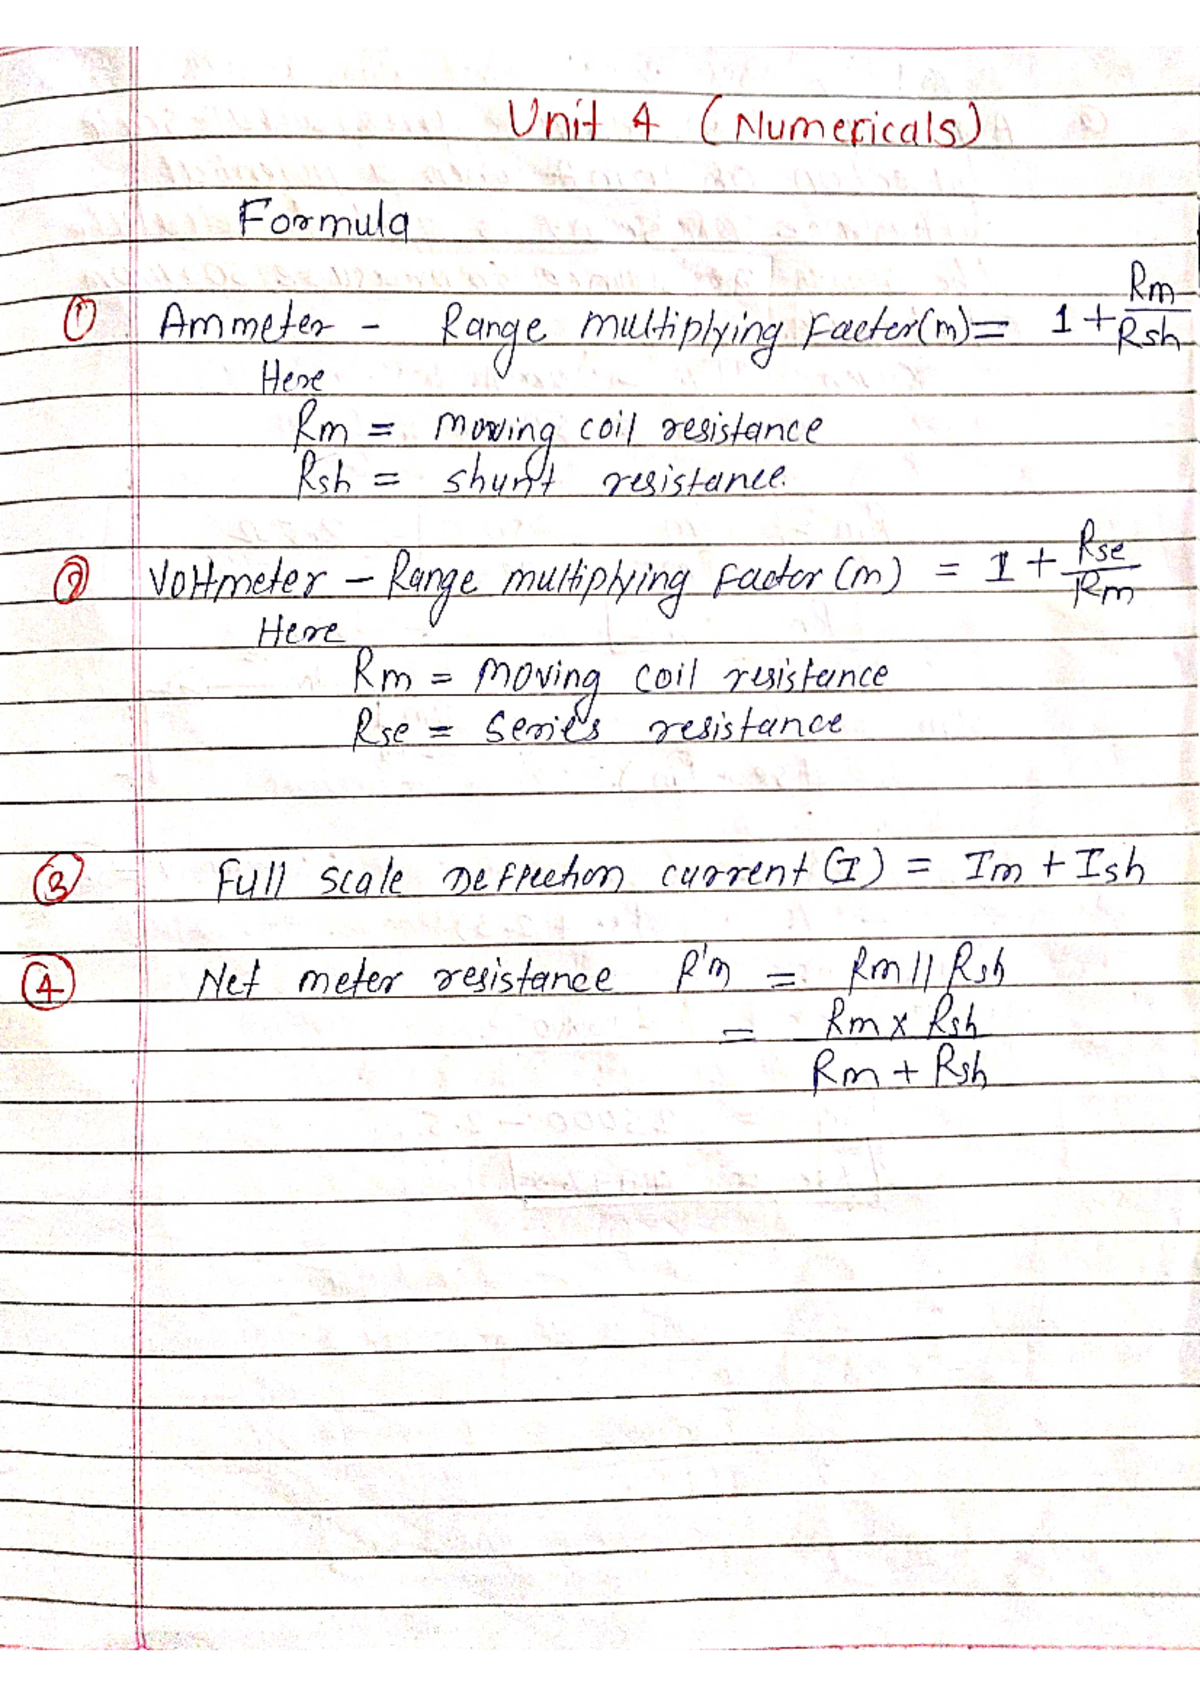 Unit 4 (Numericals)
Formula
① Ammeter - Range multiplying Factor(m) = 1 + Rm/Rsh
Here
Rm = moving coil resistance
Rsh = shunt resistance.
② Voltmeter - Range multiplying Factor (m) = 1 + Rse/Rm
Here
Rm = moving coil resistance
Rse = series resistance
③ Full scale Deflection current (I) = Im + Ish
④ Net meter resistance R'm = Rm || Rsh
= Rm x Rsh
Rm + Rsh